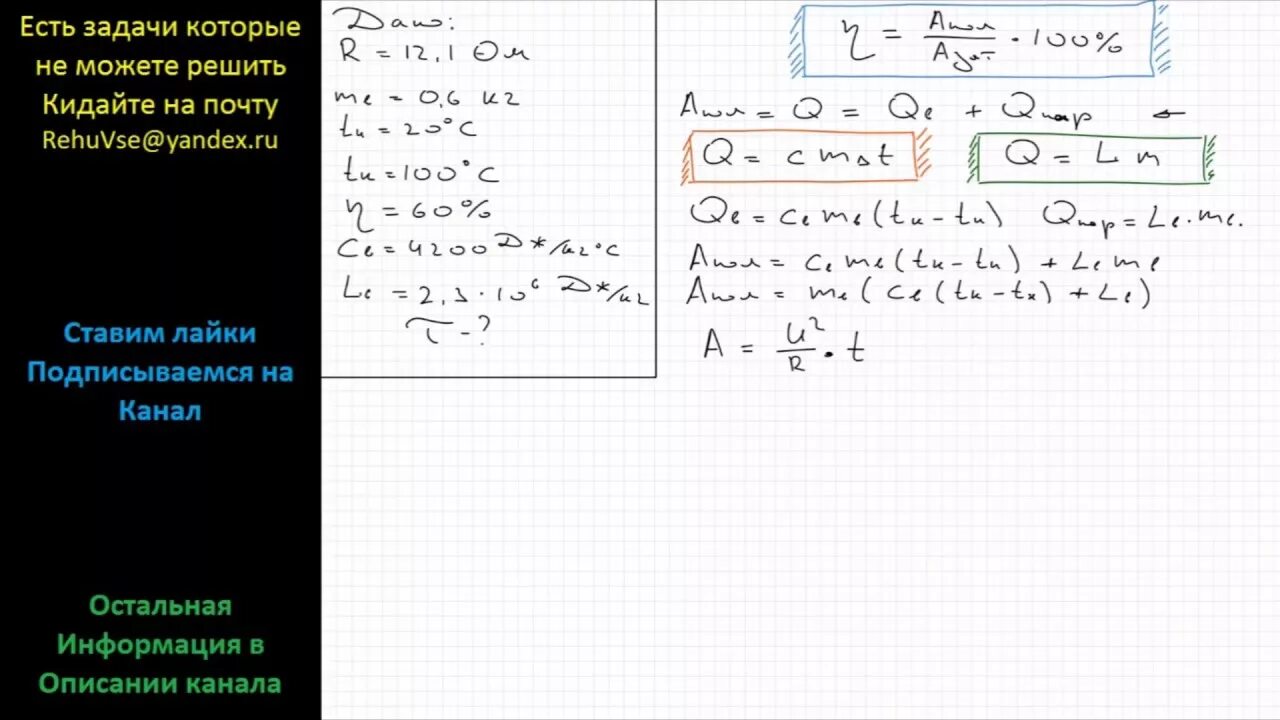 Есть задачи которые
не можете решить
Кидайте на почту
RehuVse@yandex.ru
Ставим лайки
Подписываемся на
Канал
Остальная
Информация в
Описании канала
Дано:
R = 12,1 Ом
mв = 0,6 кг
tн = 20°C
tк = 100°C
η = 60%
Cв = 4200 Дж/кг°C
Lв = 2,3 · 10⁶ Дж/кг
τ - ?
η = Aпол / Aзат · 100%
Aпол = Q = Qв + Qпар ←
Q = c m Δt
Q = L m
Qв = cв mв (tк - tн) Qпар = Lв · mв.
Aпол = cв mв (tк - tн) + Lв mв
Aпол = mв ( cв (tк - tн) + Lв )
A = U² / R · t